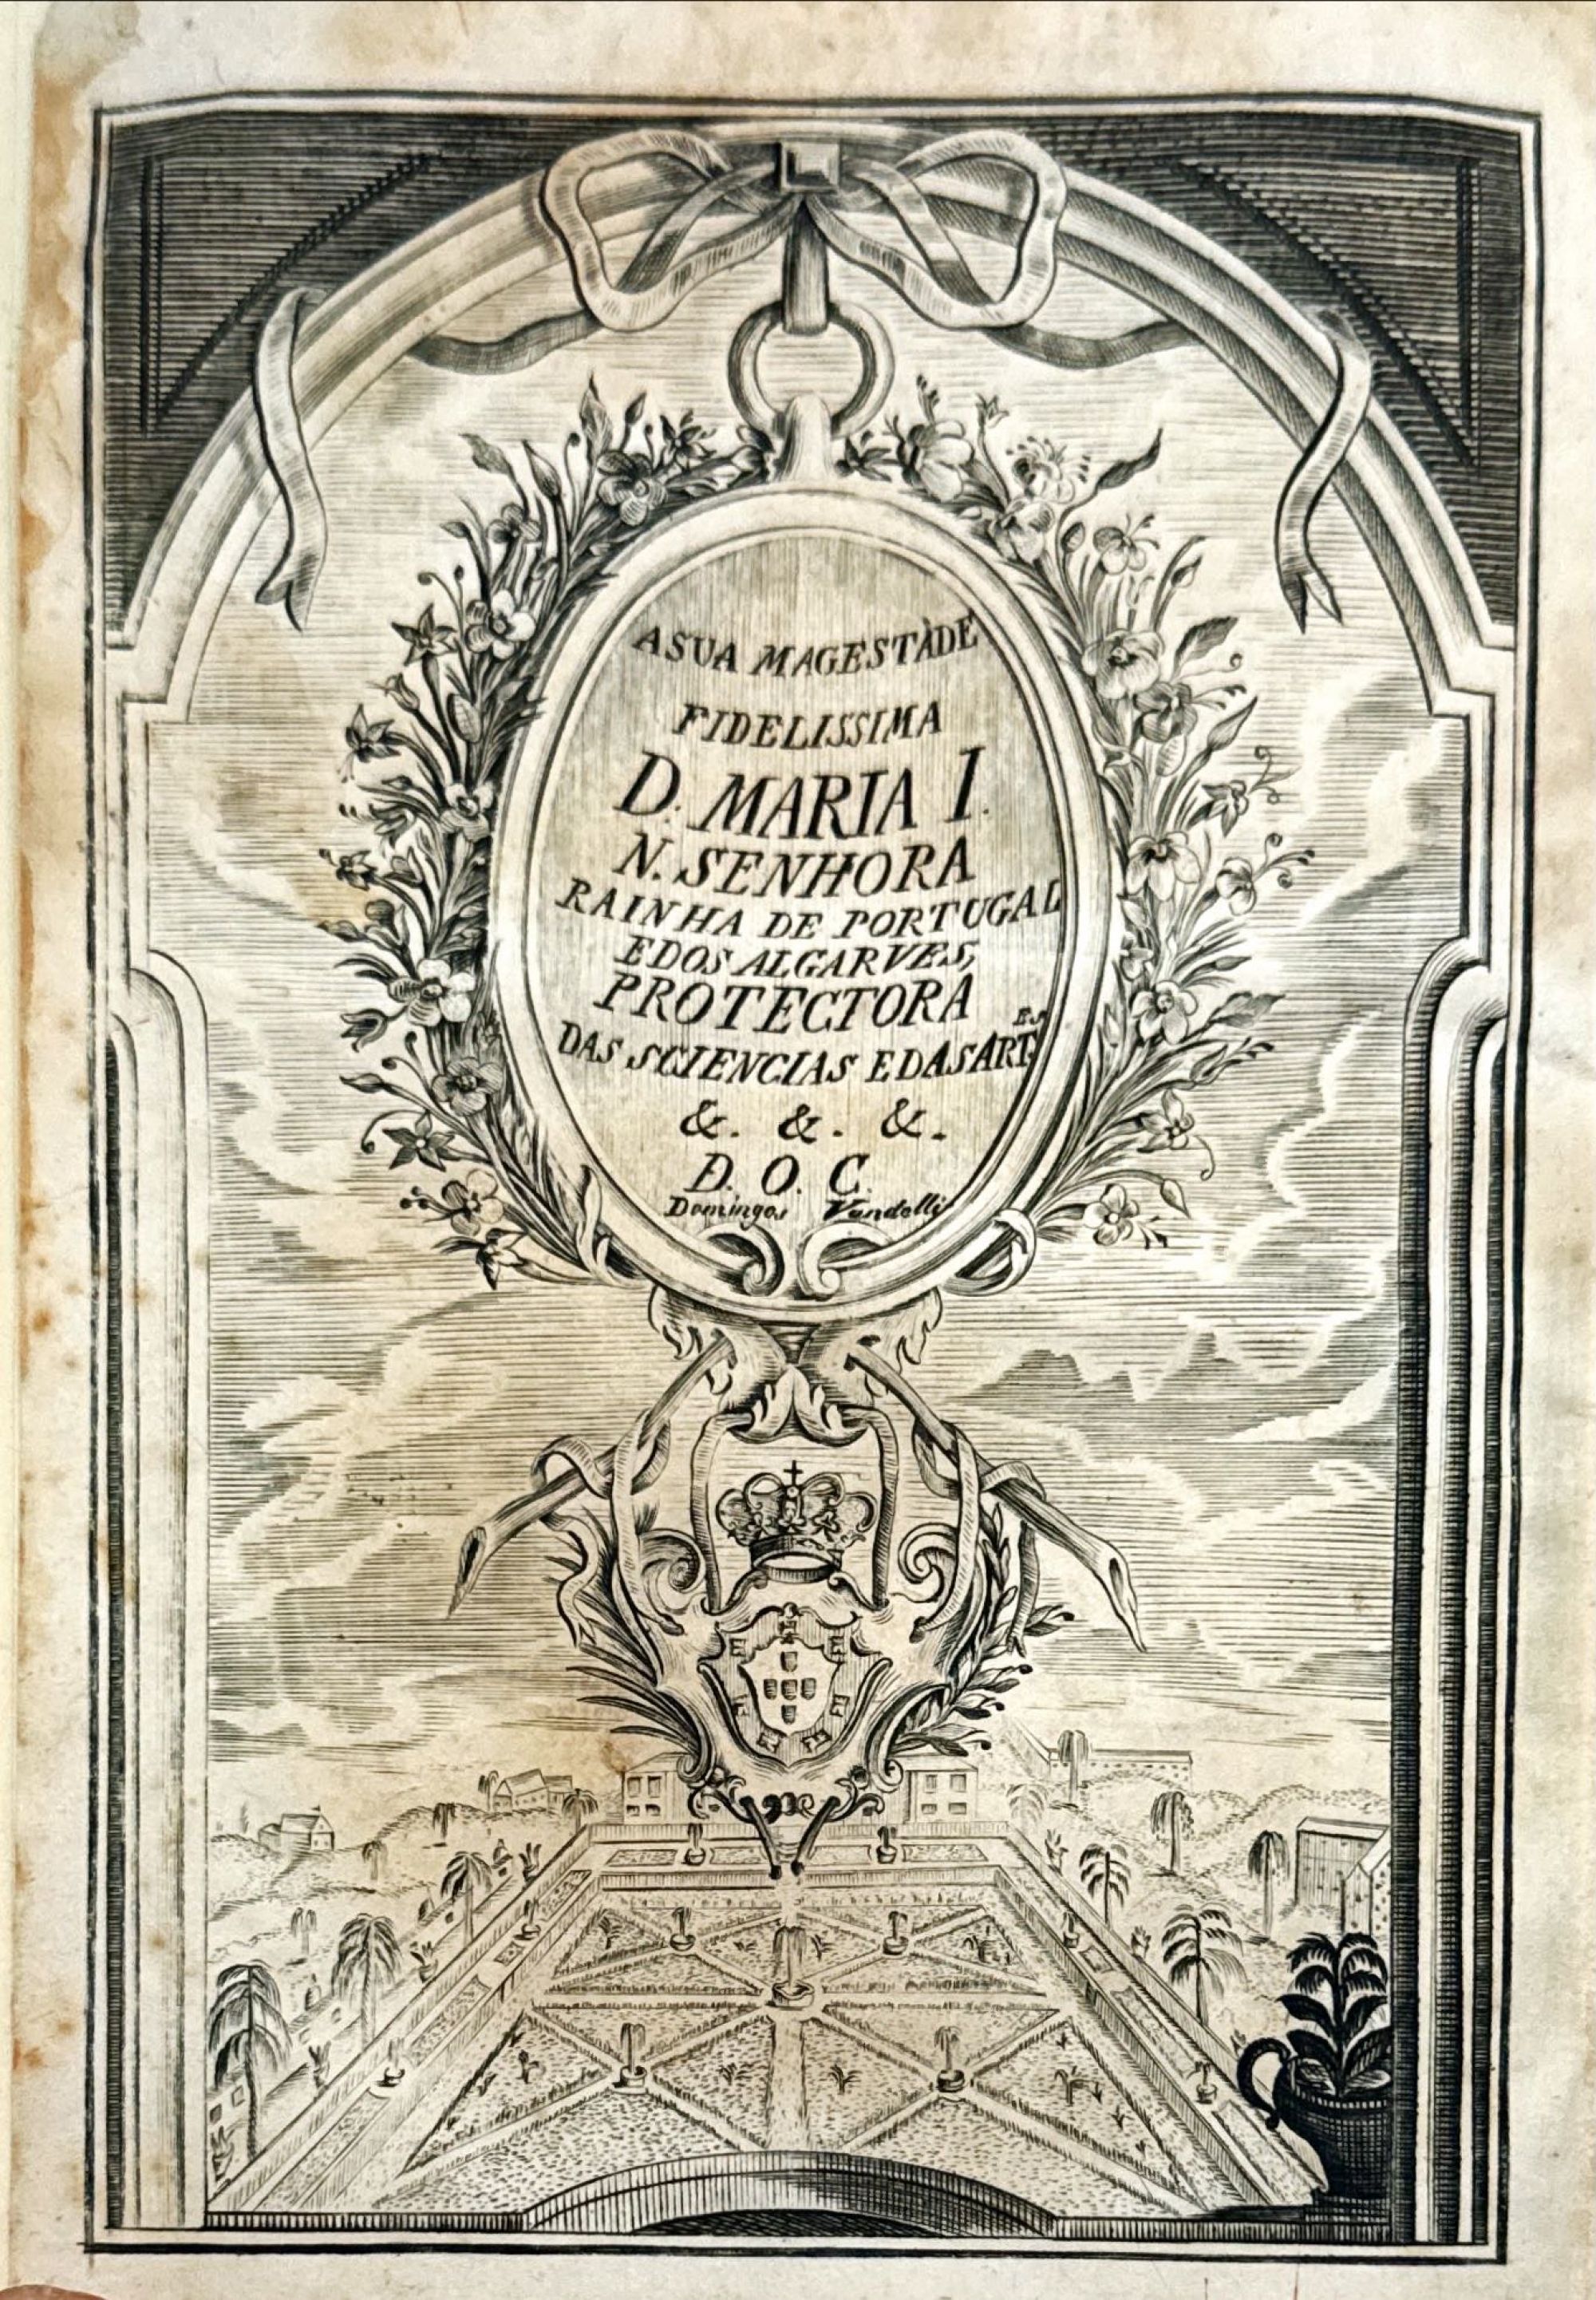 A SUA MAGESTÀDE
FIDELISSIMA
D. MARIA I.
N. SENHORA
RAINHA DE PORTUGAL
E DOS ALGARVES,
PROTECTORA
DAS SCIENCIAS E DAS ART.ES
&. &. &.
D. O. C.
Domingos Vandelli